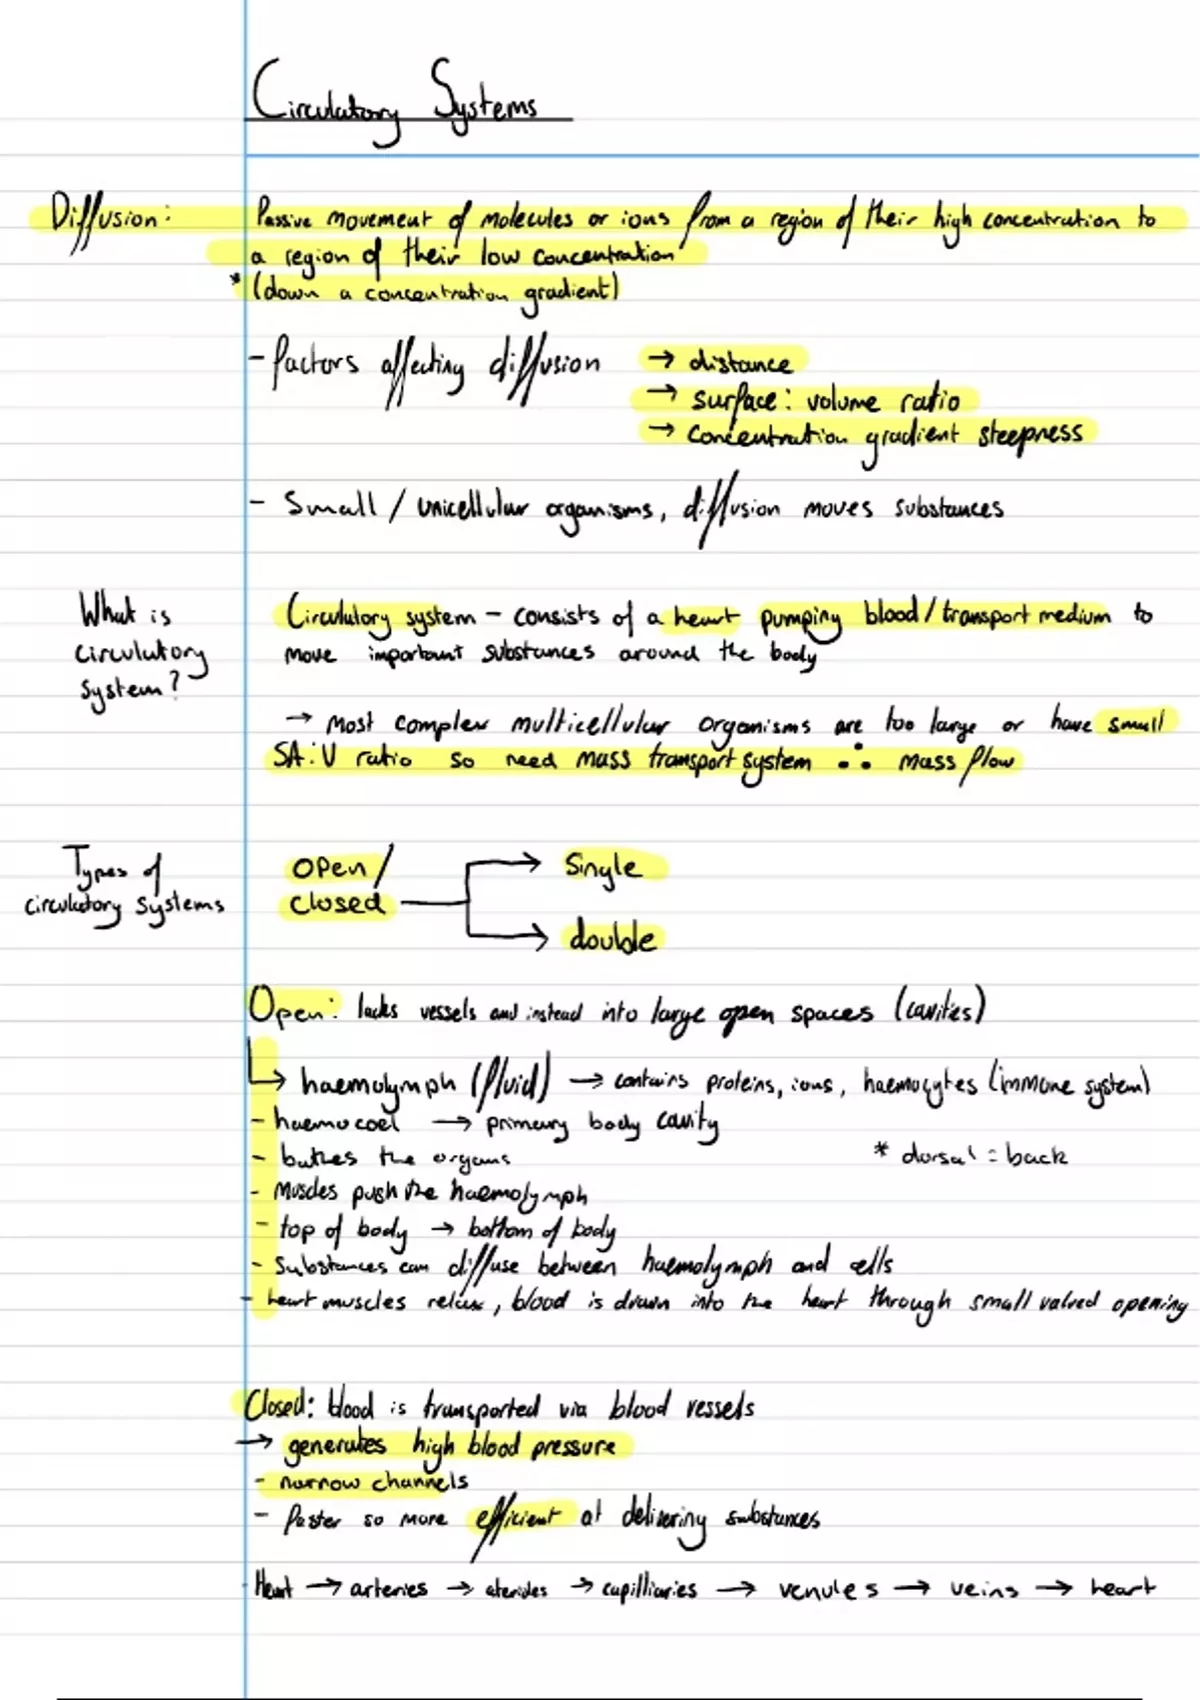 Circulatory Systems
Diffusion: Passive movement of molecules or ions from a region of their high concentration to
a region of their low concentration
* (down a concentration gradient)
- factors affecting diffusion → distance
→ surface: volume ratio
→ concentration gradient steepness
- Small / unicellular organisms, diffusion moves substances
What is
circulatory
system?
Circulatory system - consists of a heart pumping blood/transport medium to
move important substances around the body
→ Most complex multicellular organisms are too large or have small
SA:V ratio so need mass transport system ∴ mass flow
Types of
circulatory systems
open/
closed
→ Single
→ double
Open: lacks vessels and instead into large open spaces (cavities)
↳ haemolymph (fluid) → contains proteins, ions, haemocytes (immune system)
- haemocoel → primary body cavity
- bathes the organs
* dorsal = back
- Muscles push the haemolymph
- top of body → bottom of body
- Substances can diffuse between haemolymph and cells
- heart muscles relax, blood is drawn into the heart through small valved opening
Closed: blood is transported via blood vessels
→ generates high blood pressure
- narrow channels
- Faster so more efficient at delivering substances
Heart → arteries → aterioles → capilliaries → venules → veins → heart